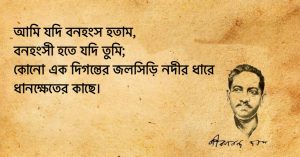 আমি যদি বনহংস হতাম,
বনহংসী হতে যদি তুমি;
কোনো এক দিগন্তের জলসিড়ি নদীর ধারে
ধানক্ষেতের কাছে।